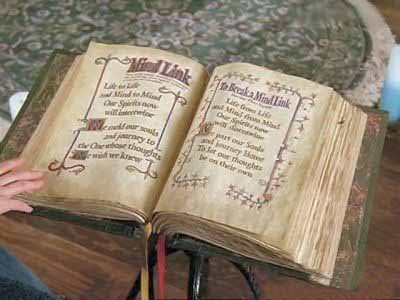 Mind Link
Life to Life
and Mind to Mind
Our Spirits now
will intertwine
We meld our souls
and journey to
the One whose thoughts
we wish we knew
To Break a Mind Link
Life from Life
and Mind from Mind
Our Spirits now
will intertwine
We part our Souls
and journey Home
To let our thoughts
be on their own